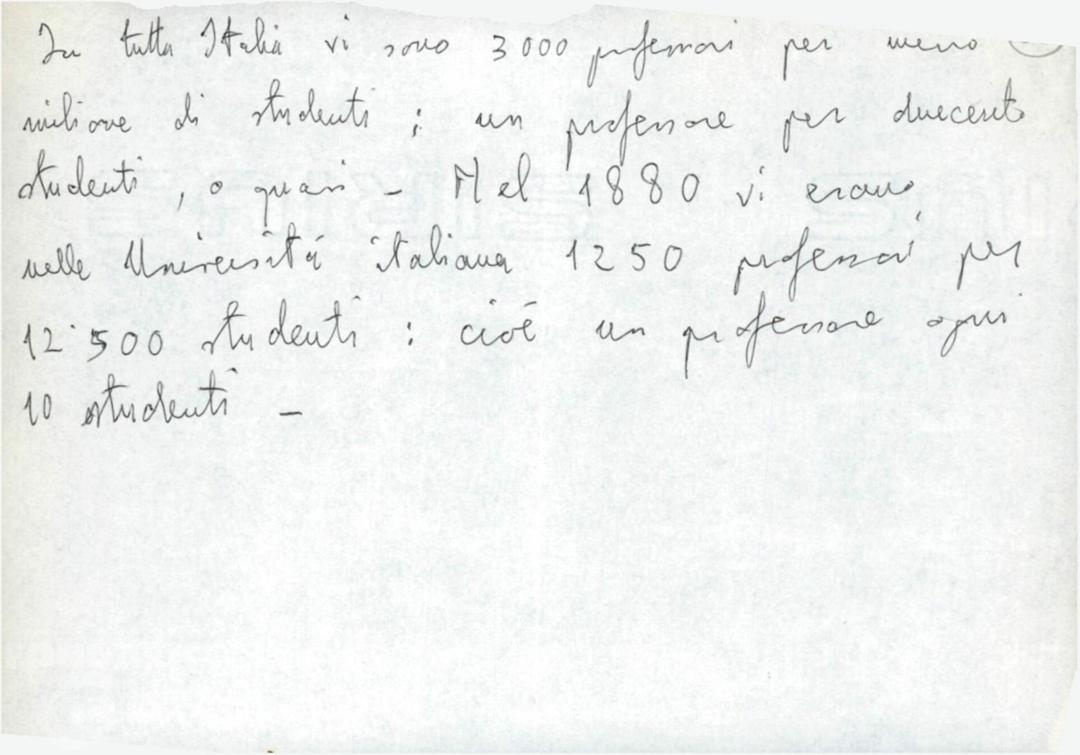 In tutta Italia vi sono 3000 professori per mezzo
milione di studenti ; un professore per duecento
studenti, o quasi - Nel 1880 vi erano,
nelle Università italiana 1250 professori per
12.500 studenti : cioè un professore ogni
10 studenti -